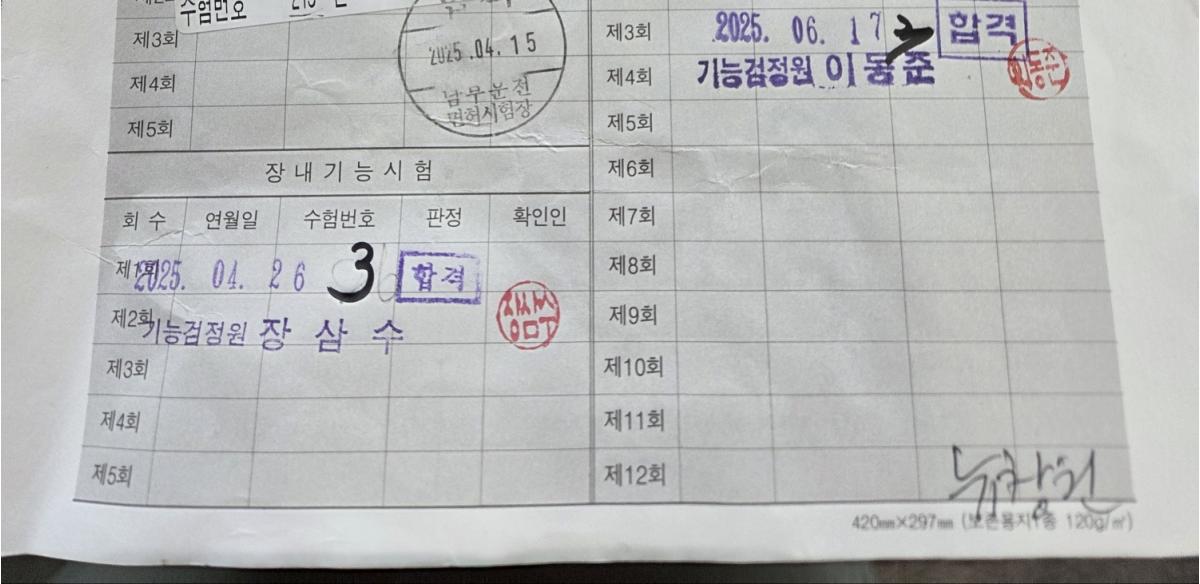 수험번호
제3회
2025.04.15
제4회
남부운전
면허시험장
제5회
장내기능시험
회 수 연월일 수험번호 판정 확인인
제1회 2025. 04. 26 3 합격
제2회 기능검정원 장 삼 수
제3회
제4회
제5회
제3회 2025. 06. 17 합격
제4회 기능검정원 이 동 준
제5회
제6회
제7회
제8회
제9회
제10회
제11회
제12회
420㎜×297㎜ (보존용지1종 120g/㎡)